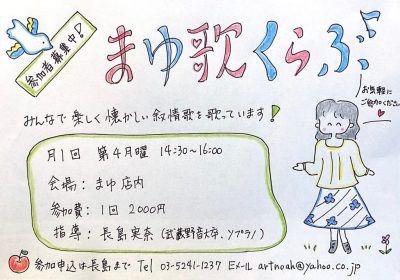 参加者募集中!
まゆ歌くらぶ♪
お気軽に
ご参加ください。
みんなで楽しく懐かしい叙情歌を歌っています!
月1回 第4月曜 14:30~16:00
会場: まゆ店内
参加費: 1回 2000円
指導: 長島実奈(武蔵野音大卒.ソプラノ)
参加申込は長島まで Tel 03-5241-1237 Eメール artnoah@yahoo.co.jp